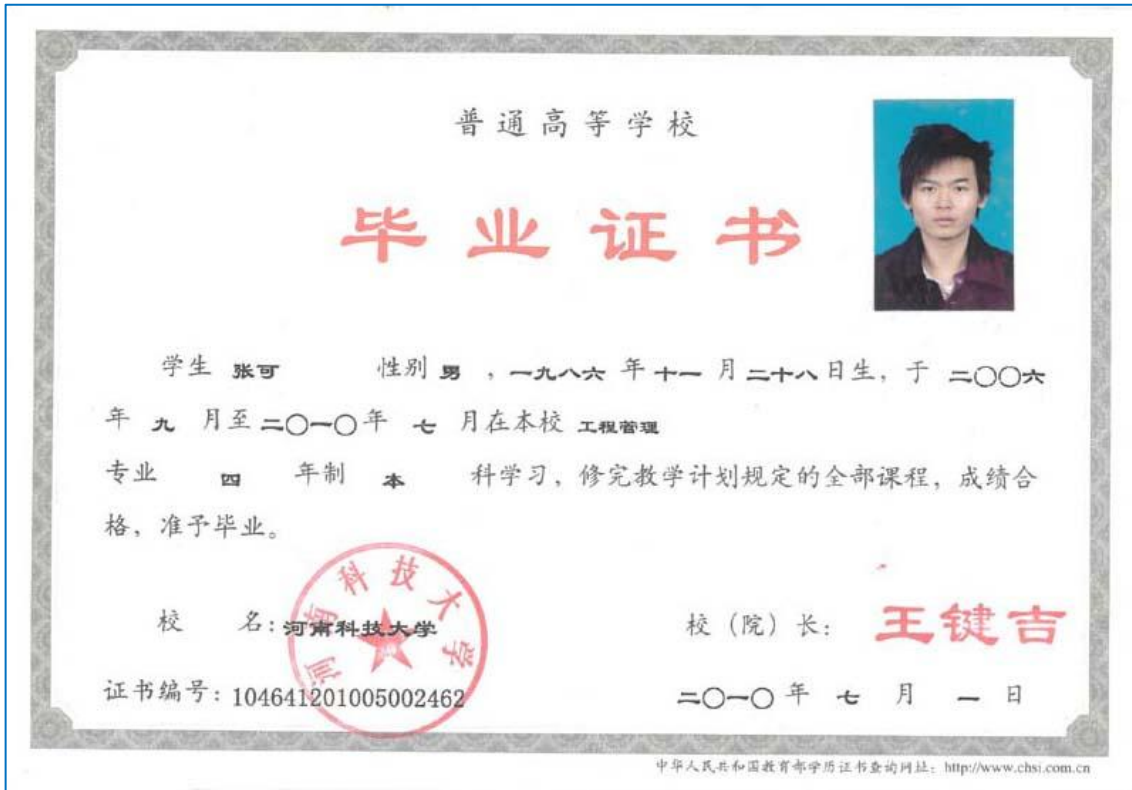 普通高等学校
毕业证书
学生 张可 性别 男 ，一九八六 年 十一 月 二十八 日生，于 二〇〇六
年 九 月至 二〇一〇 年 七 月在本校 工程管理
专业 四 年制 本 科学习，修完教学计划规定的全部课程，成绩合
格，准予毕业。
河南科技大学
校 名：河南科技大学 校（院）长：王键吉
证书编号：104641201005002462 二〇一〇 年 七 月 一 日
中华人民共和国教育部学历证书查询网址：http://www.chsi.com.cn